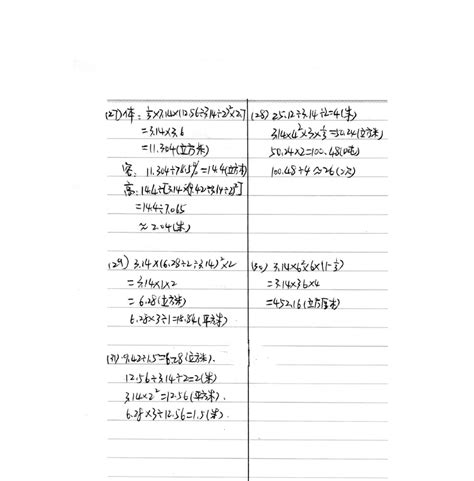 (27)体: ⅓×3.14×(12.56÷3.14÷2)²×2.7
=3.14×3.6
=11.304(立方米)
容: 11.304÷78.5%=14.4(立方米)
高: 14.4÷[3.14×(9.42÷3.14÷2)²]
=14.4÷7.065
≈2.04(米)
(28) 25.12÷3.14÷2=4(米)
3.14×4²×3×⅓=50.24(立方米)
50.24×2=100.48(吨)
100.48÷4≈26(次)
(29) 3.14×(6.28÷2÷3.14)²×2
=3.14×1×2
=6.28(立方米)
6.28×3÷1=18.84(平方米)
(30) 3.14×6²×6×(1-⅓)
=3.14×36×4
=452.16(立方厘米)
(31) 9.42÷1.5=6.28(立方米).
12.56÷3.14÷2=2(米)
3.14×2²=12.56(平方米)
6.28×3÷12.56=1.5(米)